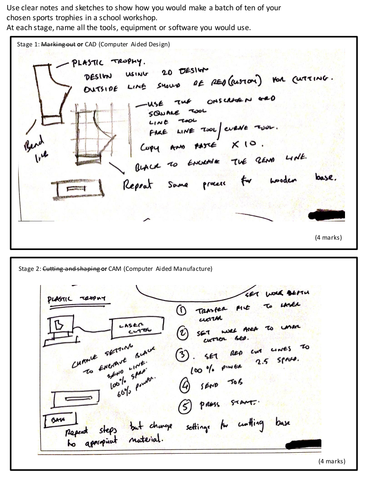 Use clear notes and sketches to show how you would make a batch of ten of your
chosen sports trophies in a school workshop.
At each stage, name all the tools, equipment or software you would use.
Stage 1: Marking out or CAD (Computer Aided Design)
PLASTIC TROPHY.
DESIGN USING 2D DESIGN
OUTSIDE LINE SHOULD BE RED (CUSTOM) FOR CUTTING.
USE THE ONSCREEN GRID
SQUARE TOOL
LINE TOOL
FREE LINE TOOL / CURVE TOOL.
COPY AND PASTE X 10.
Bend
line
BLACK TO ENGRAVE THE BEND LINE
Repeat same process for wooden base.
(4 marks)
Stage 2: Cutting and shaping or CAM (Computer Aided Manufacture)
PLASTIC TROPHY
LASER
CUTTER
SET WORK DEPTH
1 TRANSFER FILE TO LASER
CUTTER
2 SET WORK AREA TO LASER
CUTTER BED.
3. SET RED CUT LINES TO
100% POWER 2.5 SPEED.
4 SEND JOB
5 PRESS START.
CHANGE SETTING
TO ENGRAVE BLACK
BEND LINE.
100% SPEED
60% POWER.
BASE
Repeat steps but change settings for cutting base
to appropriate material.
(4 marks)